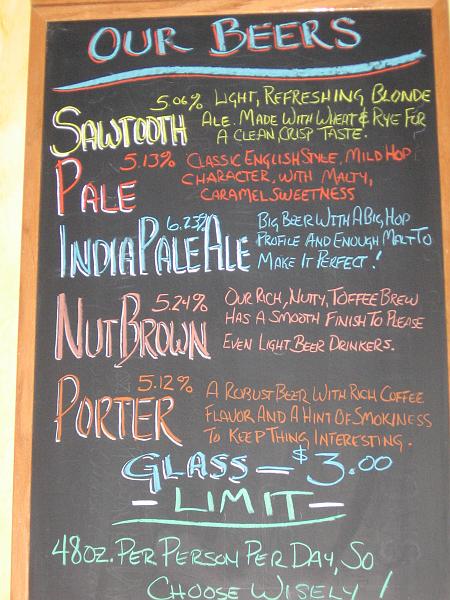 OUR BEERS
SAWTOOTH 5.06% LIGHT, REFRESHING BLONDE
ALE. MADE WITH WHEAT & RYE FOR
A CLEAN, CRISP TASTE.
PALE 5.13% CLASSIC ENGLISH STYLE, MILD HOP
CHARACTER, WITH MALTY,
CARAMEL SWEETNESS
INDIA PALE ALE 6.23% BIG BEER WITH A BIG HOP
PROFILE AND ENOUGH MALT TO
MAKE IT PERFECT!
NUT BROWN 5.24% OUR RICH, NUTTY, TOFFEE BREW
HAS A SMOOTH FINISH TO PLEASE
EVEN LIGHT BEER DRINKERS.
PORTER 5.12% A ROBUST BEER WITH RICH COFFEE
FLAVOR AND A HINT OF SMOKINESS
TO KEEP THING INTERESTING.
GLASS — $3.00
- LIMIT -
48OZ. PER PERSON PER DAY, SO
CHOOSE WISELY!